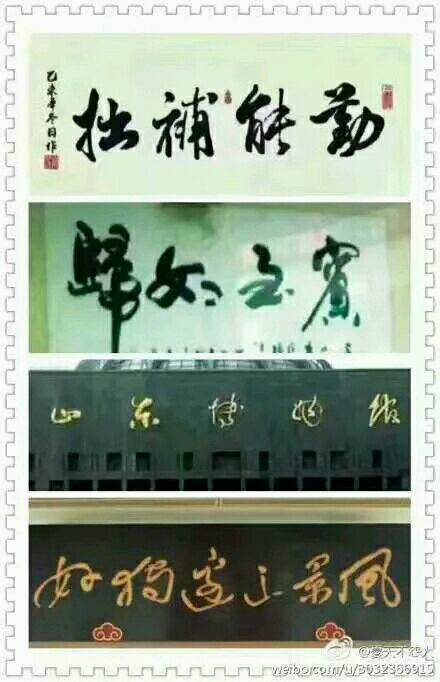 勤能補拙
賓至如歸
山东博物馆
風景这邊獨好
weibo.com/u/3032366915